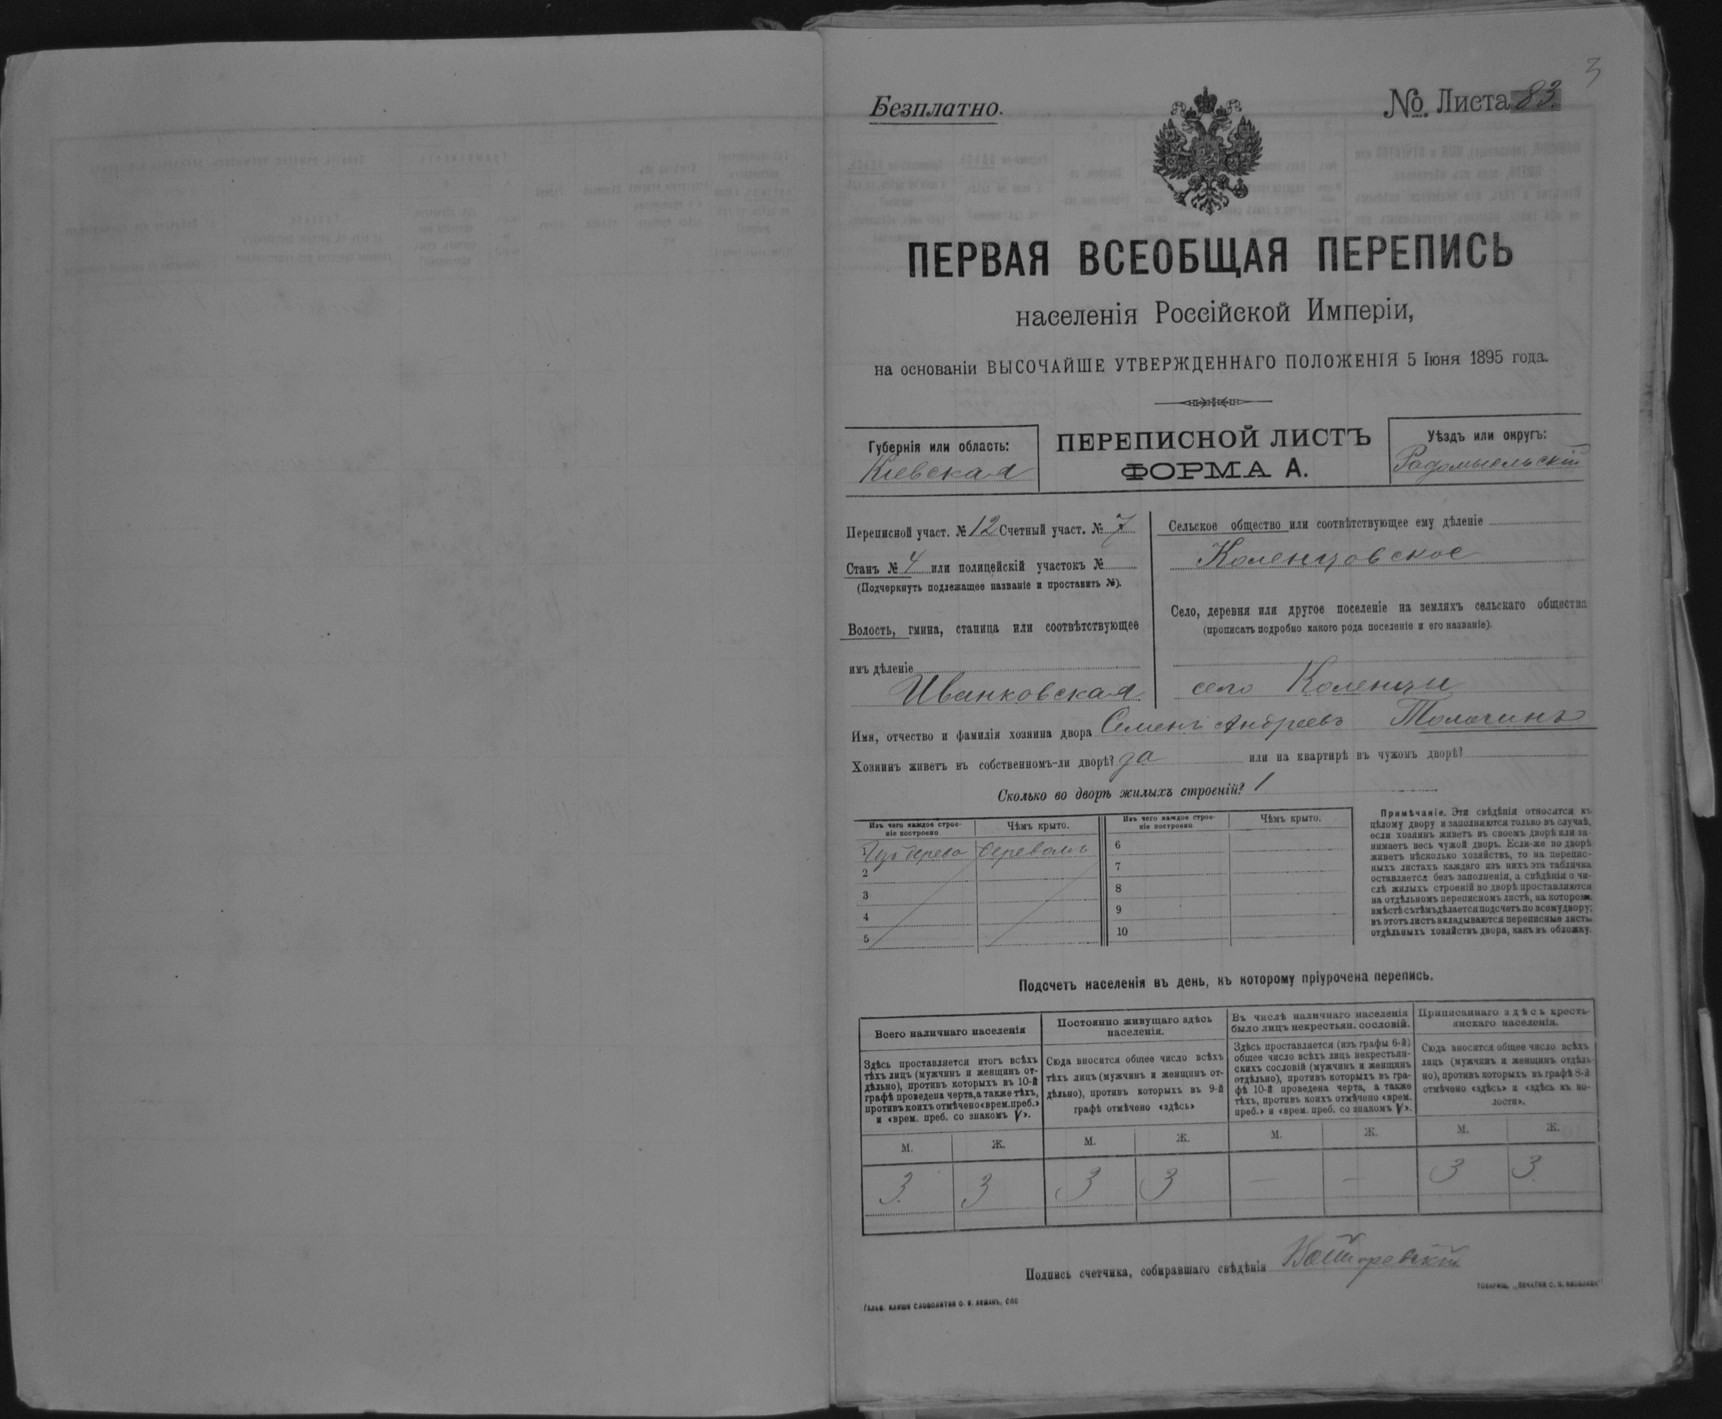 3
Безплатно.
№ Листа 83.
ПЕРВАЯ ВСЕОБЩАЯ ПЕРЕПИСЬ
населенія Россійской Имперіи,
на основаніи ВЫСОЧАЙШЕ УТВЕРЖДЕННАГО ПОЛОЖЕНІЯ 5 Іюня 1895 года.
Губернія или область:
Кіевская
ПЕРЕПИСНОЙ ЛИСТЪ
ФОРМА А.
Уѣздъ или округъ:
Радомысльскій
Переписной участ. № 12 Счетный участ. № 7
Станъ № 4 или полицейскій участокъ №
(Подчеркнуть подлежащее названіе и проставить №).
Волость, гмина, станица или соотвѣтствующее
имъ дѣленіе
Иванковская
Сельское общество или соотвѣтствующее ему дѣленіе
Коленцовское
Село, деревня или другое поселеніе на земляхъ сельскаго общества
(прописать подробно какого рода поселеніе и его названіе).
село Коленцы
Имя, отчество и фамилія хозяина двора Семенъ Андреевъ Толочинъ
Хозяинъ живетъ въ собственномъ-ли дворѣ? да или на квартирѣ въ чужомъ дворѣ?
Сколько во дворѣ жилыхъ строеній? 1
Изъ чего каждое строе-
ніе построено
Чѣмъ крыто.
Изъ чего каждое строе-
ніе построено
Чѣмъ крыто.
1 Изъ дерева деревомъ
2
3
4
5
6
7
8
9
10
Примѣчаніе. Эти свѣдѣнія относятся къ
цѣлому двору и заполняются только въ случаѣ,
если хозяинъ живетъ въ своемъ дворѣ или за-
нимаетъ весь чужой дворъ. Если-же во дворѣ
живетъ нѣсколько хозяйствъ, то на перепис-
ныхъ листахъ каждаго изъ нихъ эта табличка
оставляется безъ заполненія, а свѣдѣнія о чи-
слѣ жилыхъ строеній во дворѣ проставляются
на отдѣльномъ переписномъ листѣ, на которомъ
вмѣстѣ съ тѣмъ дѣлается подсчетъ по всему двору;
въ этотъ листъ вкладываются переписные листы
отдѣльныхъ хозяйствъ двора, какъ въ обложку.
Подсчетъ населенія въ день, къ которому пріурочена перепись.
Всего наличнаго населенія
Здѣсь проставляется итогъ всѣхъ
тѣхъ лицъ (мужчинъ и женщинъ от-
дѣльно), противъ которыхъ въ 10-й
графѣ проведена черта, а также тѣхъ,
противъ коихъ отмѣчено «врем. преб.»
и «врем. преб. со знакомъ V».
Постоянно живущаго здѣсь
населенія.
Сюда вносится общее число всѣхъ
тѣхъ лицъ (мужчинъ и женщинъ от-
дѣльно), противъ которыхъ въ 9-й
графѣ отмѣчено «здѣсь»
Въ числѣ наличнаго населенія
было лицъ некрестьян. сословій.
Здѣсь проставляется (изъ графы 6-й)
общее число всѣхъ лицъ некрестьян-
скихъ сословій (мужчинъ и женщинъ
отдѣльно), противъ которыхъ въ гра-
фѣ 10-й проведена черта, а также
тѣхъ, противъ коихъ отмѣчено «врем.
преб.» и «врем. преб. со знакомъ V».
Приписаннаго здѣсь кресть-
янскаго населенія.
Сюда вносится общее число всѣхъ
лицъ (мужчинъ и женщинъ отдѣль-
но), противъ которыхъ въ графѣ 8-й
отмѣчено «здѣсь» и «здѣсь къ во-
лости».
М. Ж. М. Ж. М. Ж. М. Ж.
3 3 3 3 — — 3 3
Подпись счетчика, собиравшаго свѣдѣнія
ГАЛЬВ. КЛИШЕ СЛОВОЛИТНИ О. И. ЛЕМАНЪ, СПБ